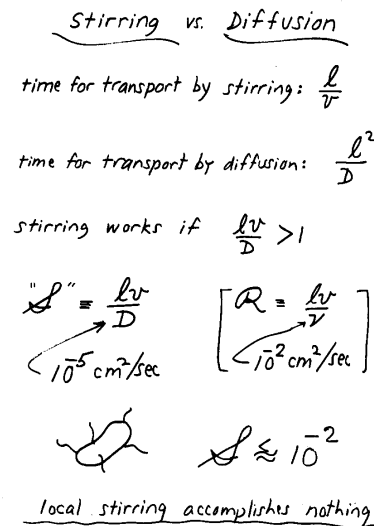 Stirring vs. Diffusion
time for transport by stirring: l/v
time for transport by diffusion: l²/D
stirring works if lv/D >1
"S" ≡ lv/D [R ≡ lv/ν]
10⁻⁵ cm²/sec 10⁻² cm²/sec
S ≲ 10⁻²
local stirring accomplishes nothing